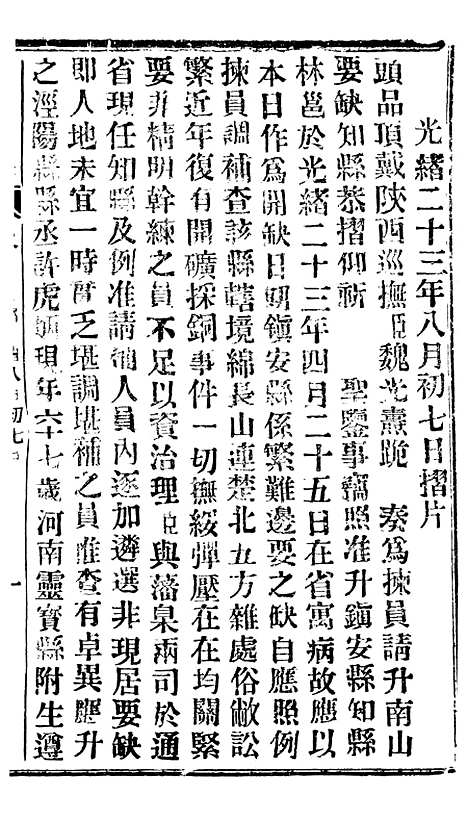 光緒二十三年八月初七日摺片
頭品頂戴陝西巡撫臣魏光燾跪 奏爲揀員請升南山
要缺知縣恭摺仰祈 聖鑒事竊照准升鎭安縣知縣
林邕於光緒二十三年四月二十五日在省寓病故應以
本日作爲開缺日期鎭安縣係繁難邊要之缺自應照例
揀員調補查該縣轄境綿長山連楚北五方雜處俗敝訟
繁近年復有開礦採銅事件一切撫綏彈壓在在均關緊
要非精明幹練之員不足以資治理臣與藩臬兩司於通
省現任知縣及例准請補人員內逐加遴選非現居要缺
卽人地未宜一時實乏堪調堪補之員惟查有卓異應升
之涇陽縣縣丞許虎 現年六十七歲河南靈寶縣附生遵
八月初七日
一